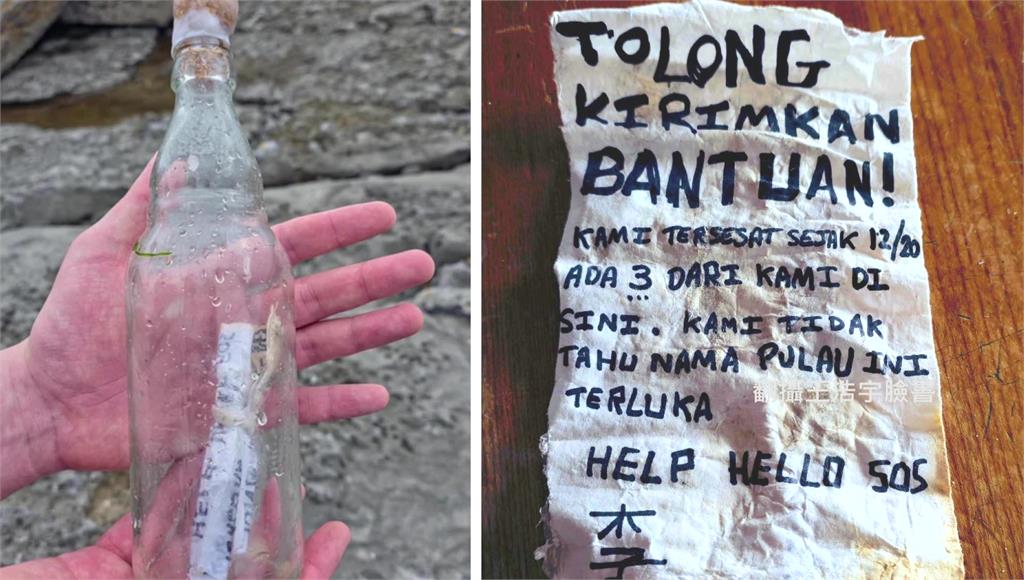 TOLONG
KIRIMKAN
BANTUAN!
KAMI TERSESAT SEJAK 12/20
ADA 3 DARI KAMI DI
SINI. KAMI TIDAK
TAHU NAMA PULAU INI
TERLUKA
HELP HELLO SOS
李
翻攝王浩宇臉書